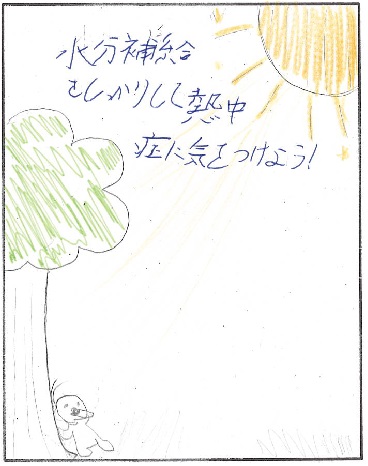 水分補給
をしっかりして熱中
症に気をつけよう!